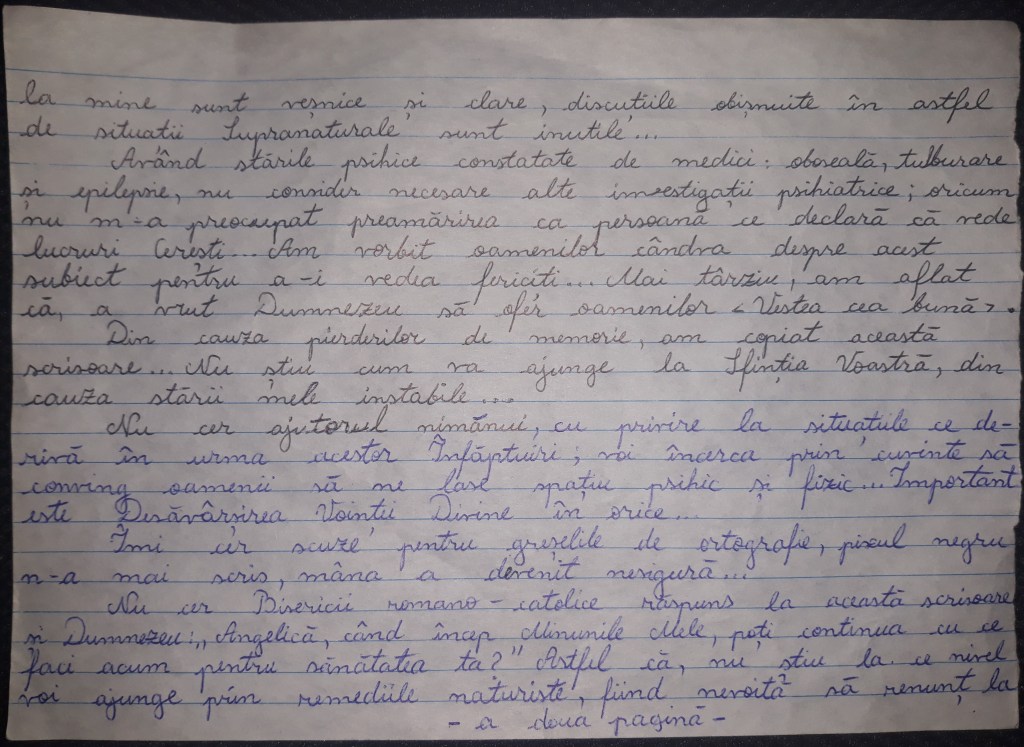 la mine sunt veșnice și clare, discuțiile obișnuite în astfel
de situații Supranaturale sunt inutile...
Având stările psihice constatate de medici: oboseală, tulburare
și epilepsie, nu consider necesare alte investigații psihiatrice; oricum
nu m-a preocupat preamărirea ca persoană ce declară că vede
lucruri Cerești... Am vorbit oamenilor cândva despre acest
subiect pentru a-i vedea fericiți... Mai târziu, am aflat
că, a vrut Dumnezeu să ofer oamenilor <Vestea cea bună>.
Din cauza pierderilor de memorie, am copiat această
scrisoare... Nu știu cum va ajunge la Sfinția Voastră, din
cauza stării mele instabile...
Nu cer ajutorul nimănui, cu privire la situațiile ce de-
rivă în urma acestor Înfăptuiri; voi încerca prin cuvinte să
conving oamenii să ne lase spațiu psihic și fizic... Important
este Desăvârșirea Voinții Divine în orice...
Îmi cer scuze pentru greșelile de ortografie, pixul negru
n-a mai scris, mâna a devenit nesigură...
Nu cer Bisericii romano-catolice răspuns la această scrisoare
și Dumnezeu: „Angelică, când încep Minunile Mele, poți continua cu ce
faci acum pentru sănătatea ta?" Astfel că, nu știu la ce nivel
voi ajunge prin remediile naturiste, fiind nevoită să renunț la
- a doua pagină -